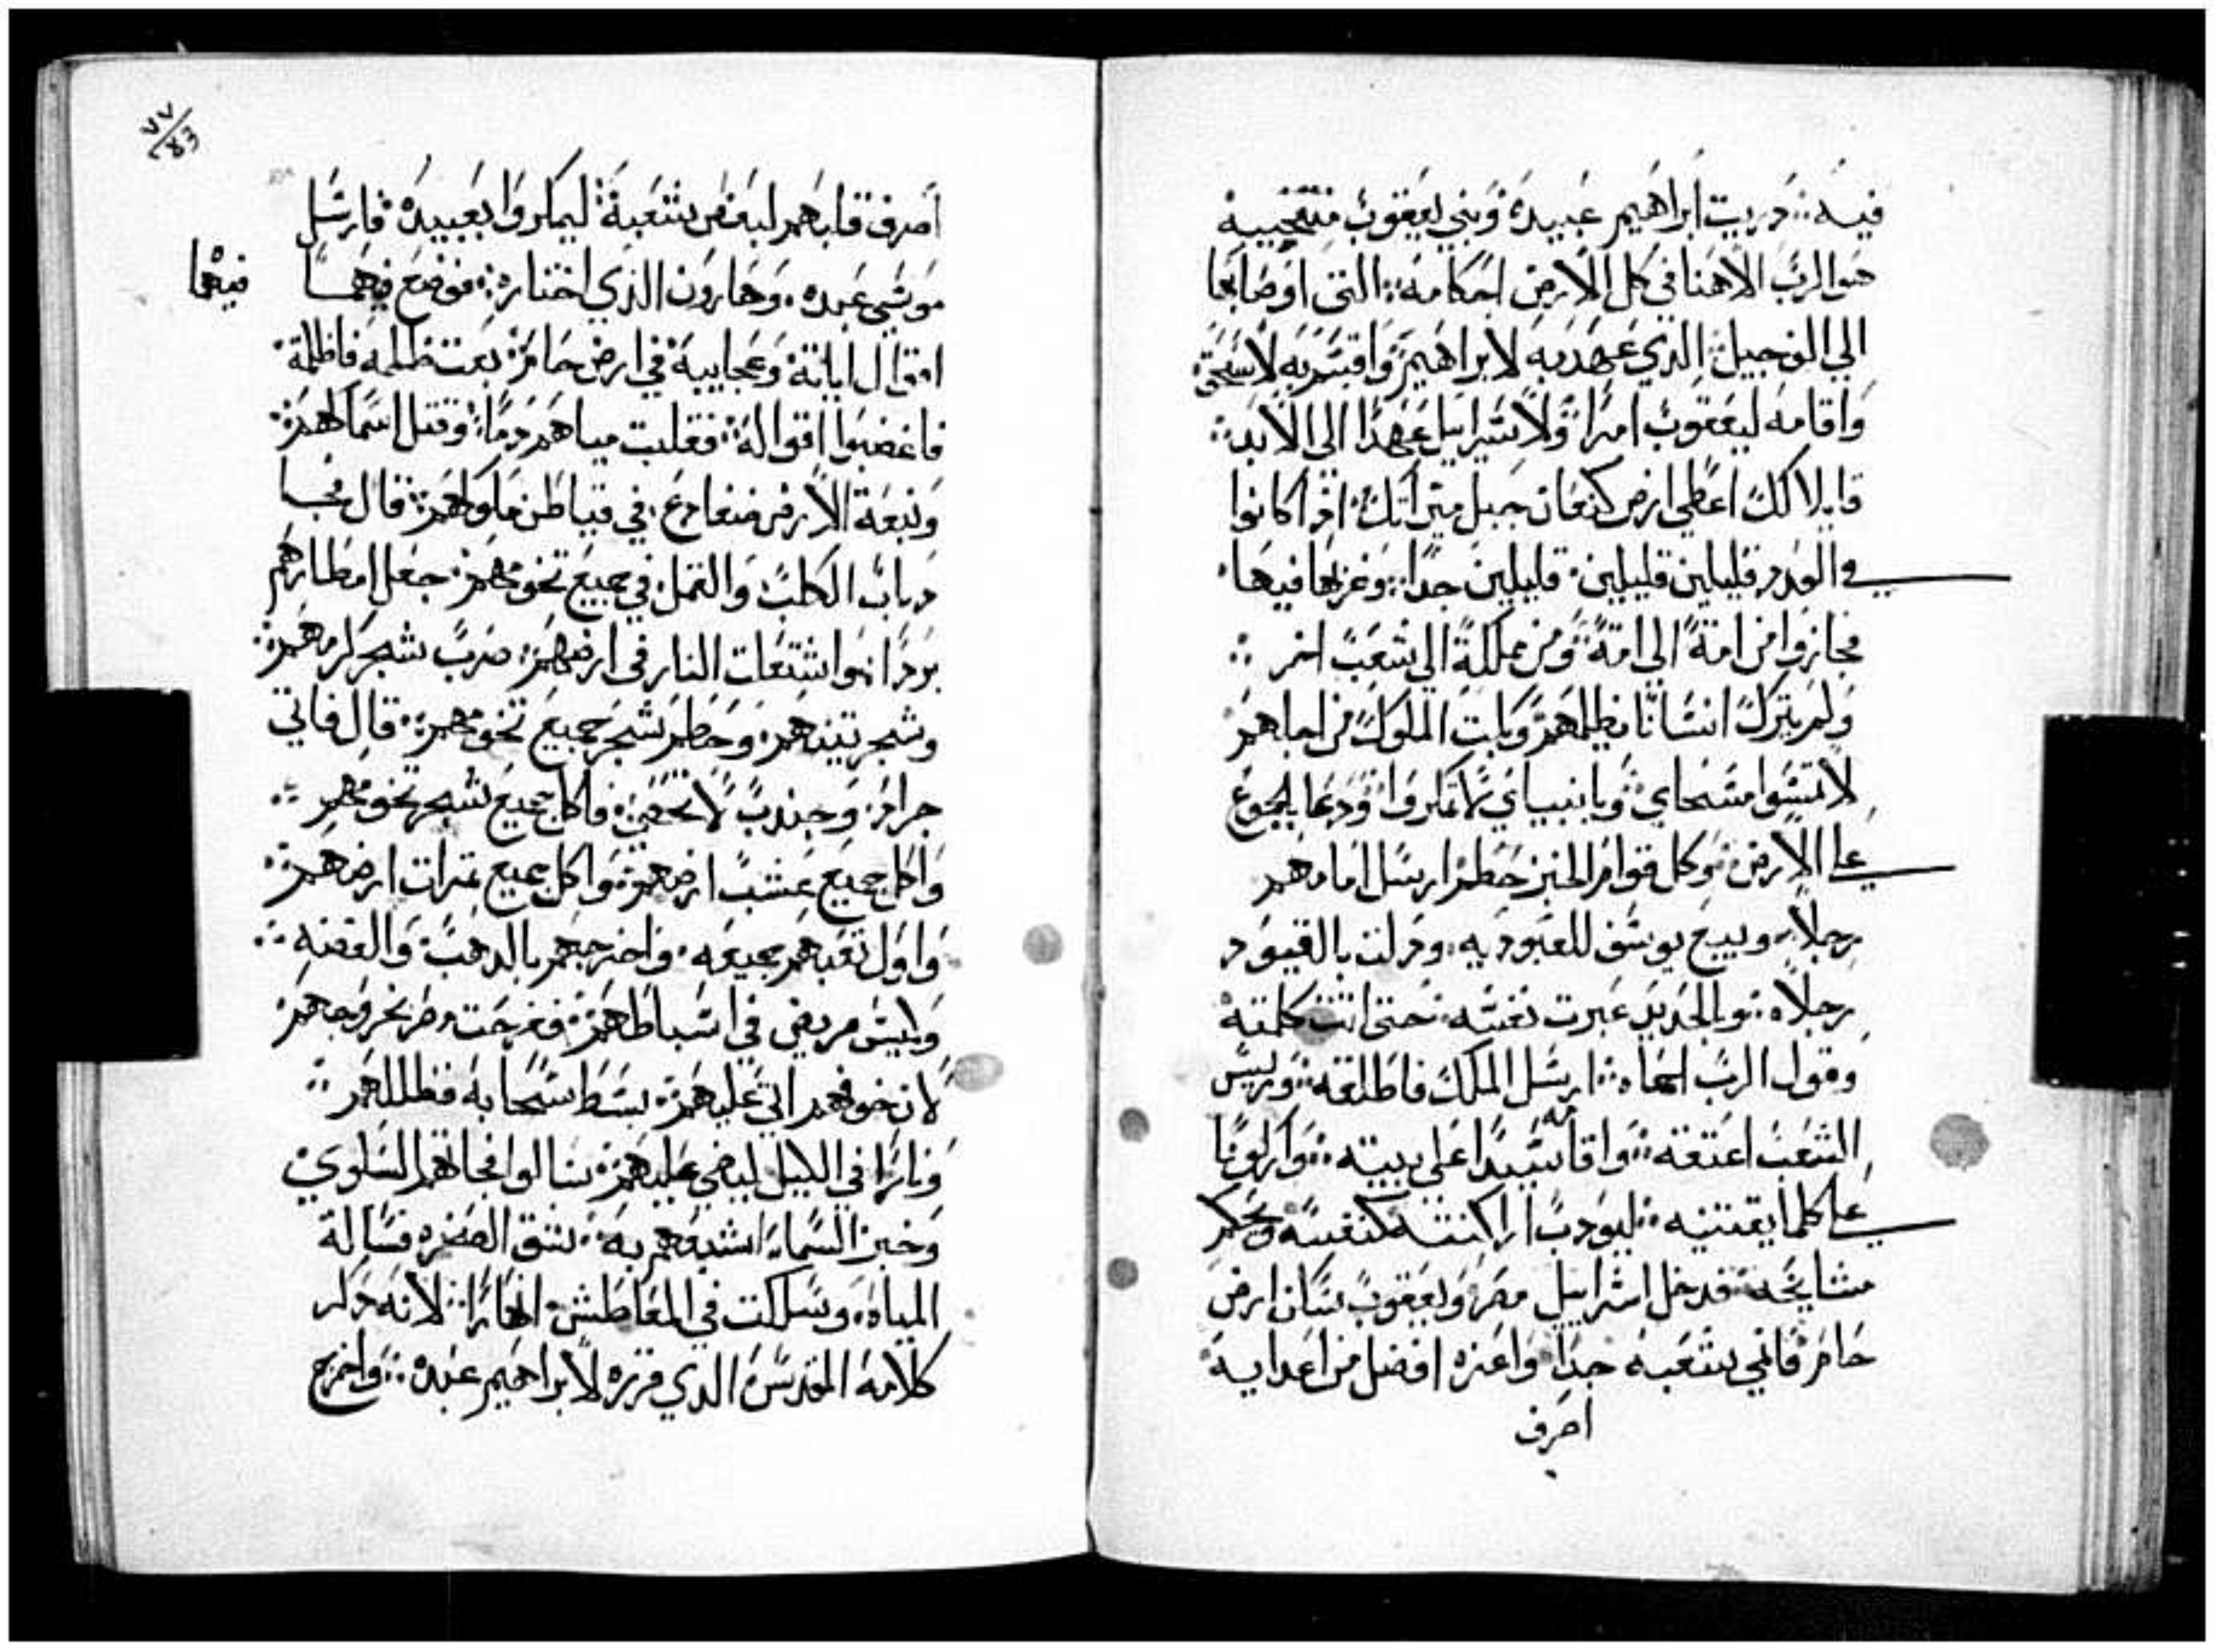 فيه : دريت ابراهيم عبيده وبني يعقوب منتجبيه
هو الرب الاهنا في كل الارض احكامه : التي اوصا بها
الي الف جيل الدي عهد به لابراهيم واقسم به لاسحق
واقامه ليعقوب امرا ولاسراييل عهدا الي الابد
قايلا لك اعطي ارض كنعان حبل ميراتك ادا كانوا
في العدد قليلين قليلين قليلين جدا وغربا فيها
فجازوا من امة الي امة ومن مملكة الي شعب اخر
ولم يترك انسانا يظلمهم وبكت الملوك من اجلهم
لا تمسوا مسحاي وبانبياي لا تمكروا ودعا بالجوع
علي الارض وكل قوام الخبز حطم ارسل امامهم
رجلا وبيع يوسف للعبوديه ودلت بالقيود
رجلاه وبالحديد عبرت نفسه حتي اتت كلمته
وقول الرب احماه ارسل الملك فاطلقه وريس
الشعب اعتقه واقامه سيدا علي بيته واركونا
علي كلما يقتنيه ليودب اراكنته كنفسه ويحكم
مشايخه فدخل اسراييل مصر ويعقوب سكن ارض
حام فانمي شعبه جدا واعزه افضل من اعدايه
اصرف
٧٧
اصرف قلبهم لبغض شعبه ليمكروا بعبيده فارسل
موسي عبده وهارون الدي اختاره فوضع فيهما
فيهما
اقوال اياته وعجايبه في ارض حام بعت ظلمه فاظلمة
فاغضبوا اقواله فقلبت مياههم دما وقتل اسماكهم
ونبعة الارض ضفادع في قياطن ملوكهم قال فجا
دباب الكلب والقمل في جميع تخومهم جعل امطارهم
بردا واشتعلت النار في ارضهم ضرب شجر كرمهم
وشجر تينهم وحطم شجر جميع تخومهم قال فاتي
جراد وجندب لا يحصي فاكل جميع شجر تخومهم
واكل جميع عشب ارضهم واكل جميع تمرات ارضهم
واول تعبهم جميعه واخرجهم بالدهب والفضه
وليس مريض في اسباطهم ففرحت مصر بخروجهم
لان خوفهم اتي عليهم بسط سحابه فظللهم
ونارا في الليل ليضي عليهم سالوا فجاتهم السلوي
وخبز السما اشبعهم به شق الصخره فسالة
المياه وسلكت في المعاطش انهارا لانه دكر
كلامه المقدس الدي قرره لابراهيم عبده واخرج